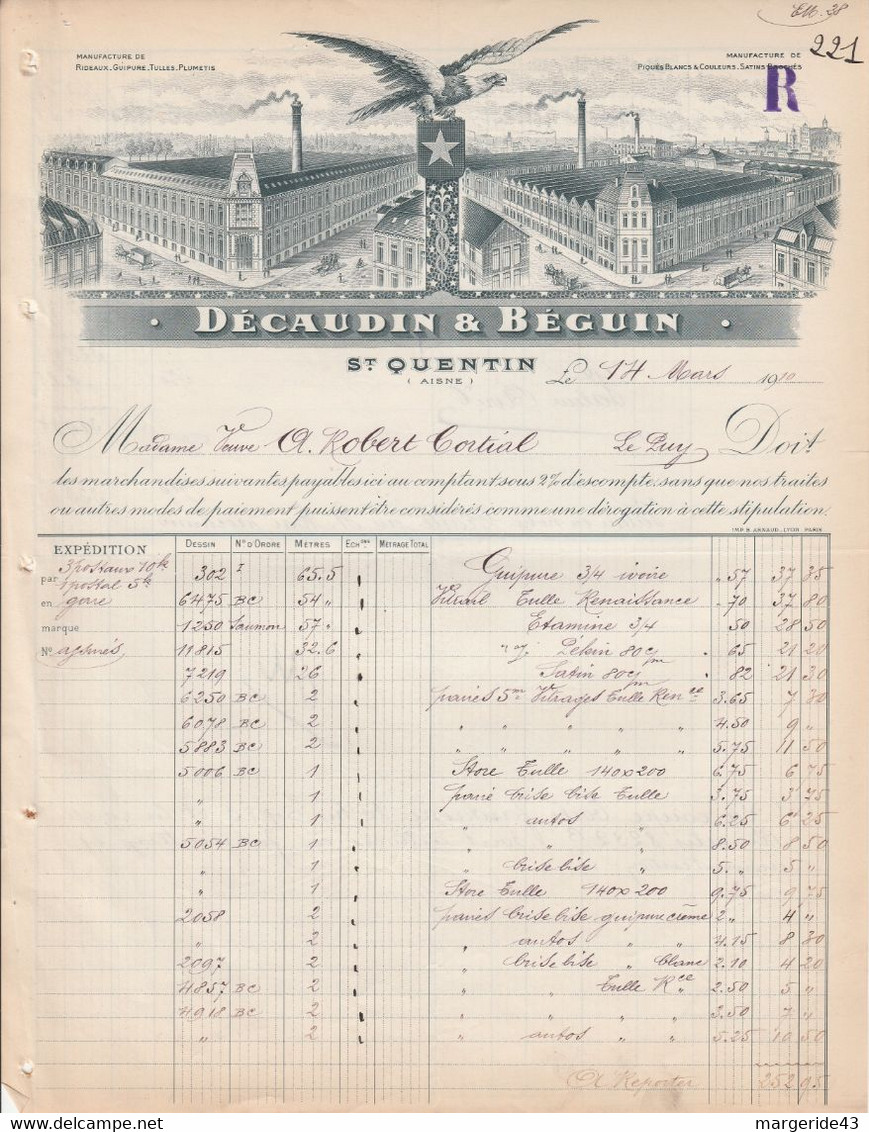 Ett. 28
221
MANUFACTURE DE
RIDEAUX. GUIPURE. TULLES. PLUMETIS
MANUFACTURE DE
PIQUÉS BLANCS & COULEURS. SATINS BROCHÉS
R
· DÉCAUDIN & BÉGUIN ·
ST QUENTIN
( AISNE )
Le 14 Mars 1910
Madame Veuve A. Robert Cortial Le Puy Doit
les marchandises suivantes payables ici au comptant sous 2% d'escompte, sans que nos traites
ou autres modes de paiement puissent être considérés comme une dérogation à cette stipulation.
IMP. B. ARNAUD_LYON PARIS
EXPÉDITION DESSIN N° D'ORDRE MÈTRES ECHons MÉTRAGE TOTAL
3 postaux 10k
par 1 postal 5k 302 I 65.5 Guipure 3/4 ivoire " 57 37 35
en gare 6475 BC 54 " Vitrail Tulle Renaissance " 70 37 80
marque 1250 Saumon 57 " Etamine 3/4 50 28 50
N° assurés 11815 32.6 Pékin 80c/m 65 21 20
7219 26 Satin 80c/m 82 21 30
6250 BC 2 paires 5m Vitrages Tulle Rence 3.65 7 30
6078 BC 2 " " " " 4.50 9 "
5883 BC 2 " " " " 5.75 11 50
5006 BC 1 Store Tulle 140x200 6.75 6 75
" 1 paire brise bise Tulle 3.75 3 75
" 1 " autos " 6.25 6 25
5054 BC 1 " " " 8.50 8 50
" 1 " brise bise " 5. " 5 "
" 1 Store Tulle 140x200 9.75 9 75
2058 2 paires brise bise guipure crême 2 " 4 "
" 2 " autos " " 4.15 8 30
2097 2 " brise bise " blanc 2.10 4 20
4857 BC 2 " " Tulle Rce 2.50 5 "
4918 BC 2 " " " " 3.50 7 "
" 2 " autos " " 5.25 10 50
A Reporter 252 95
margeride43